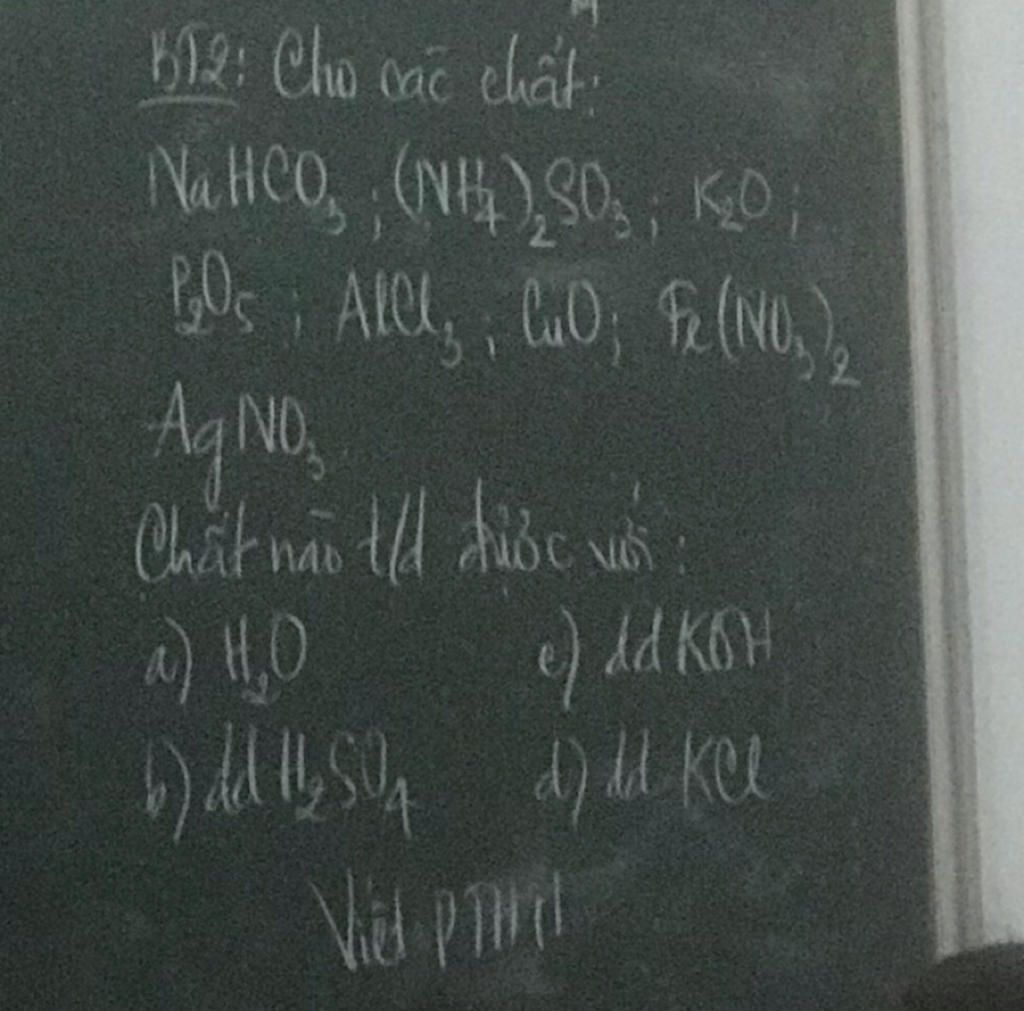 BT2: Cho các chất:
NaHCO₃; (NH₄)₂SO₃; K₂O;
P₂O₅; AlCl₃; CuO; Fe(NO₃)₂
AgNO₃.
Chất nào t/d được với:
a) H₂O c) dd KOH
b) dd H₂SO₄ d) dd KCl
Viết PTHH